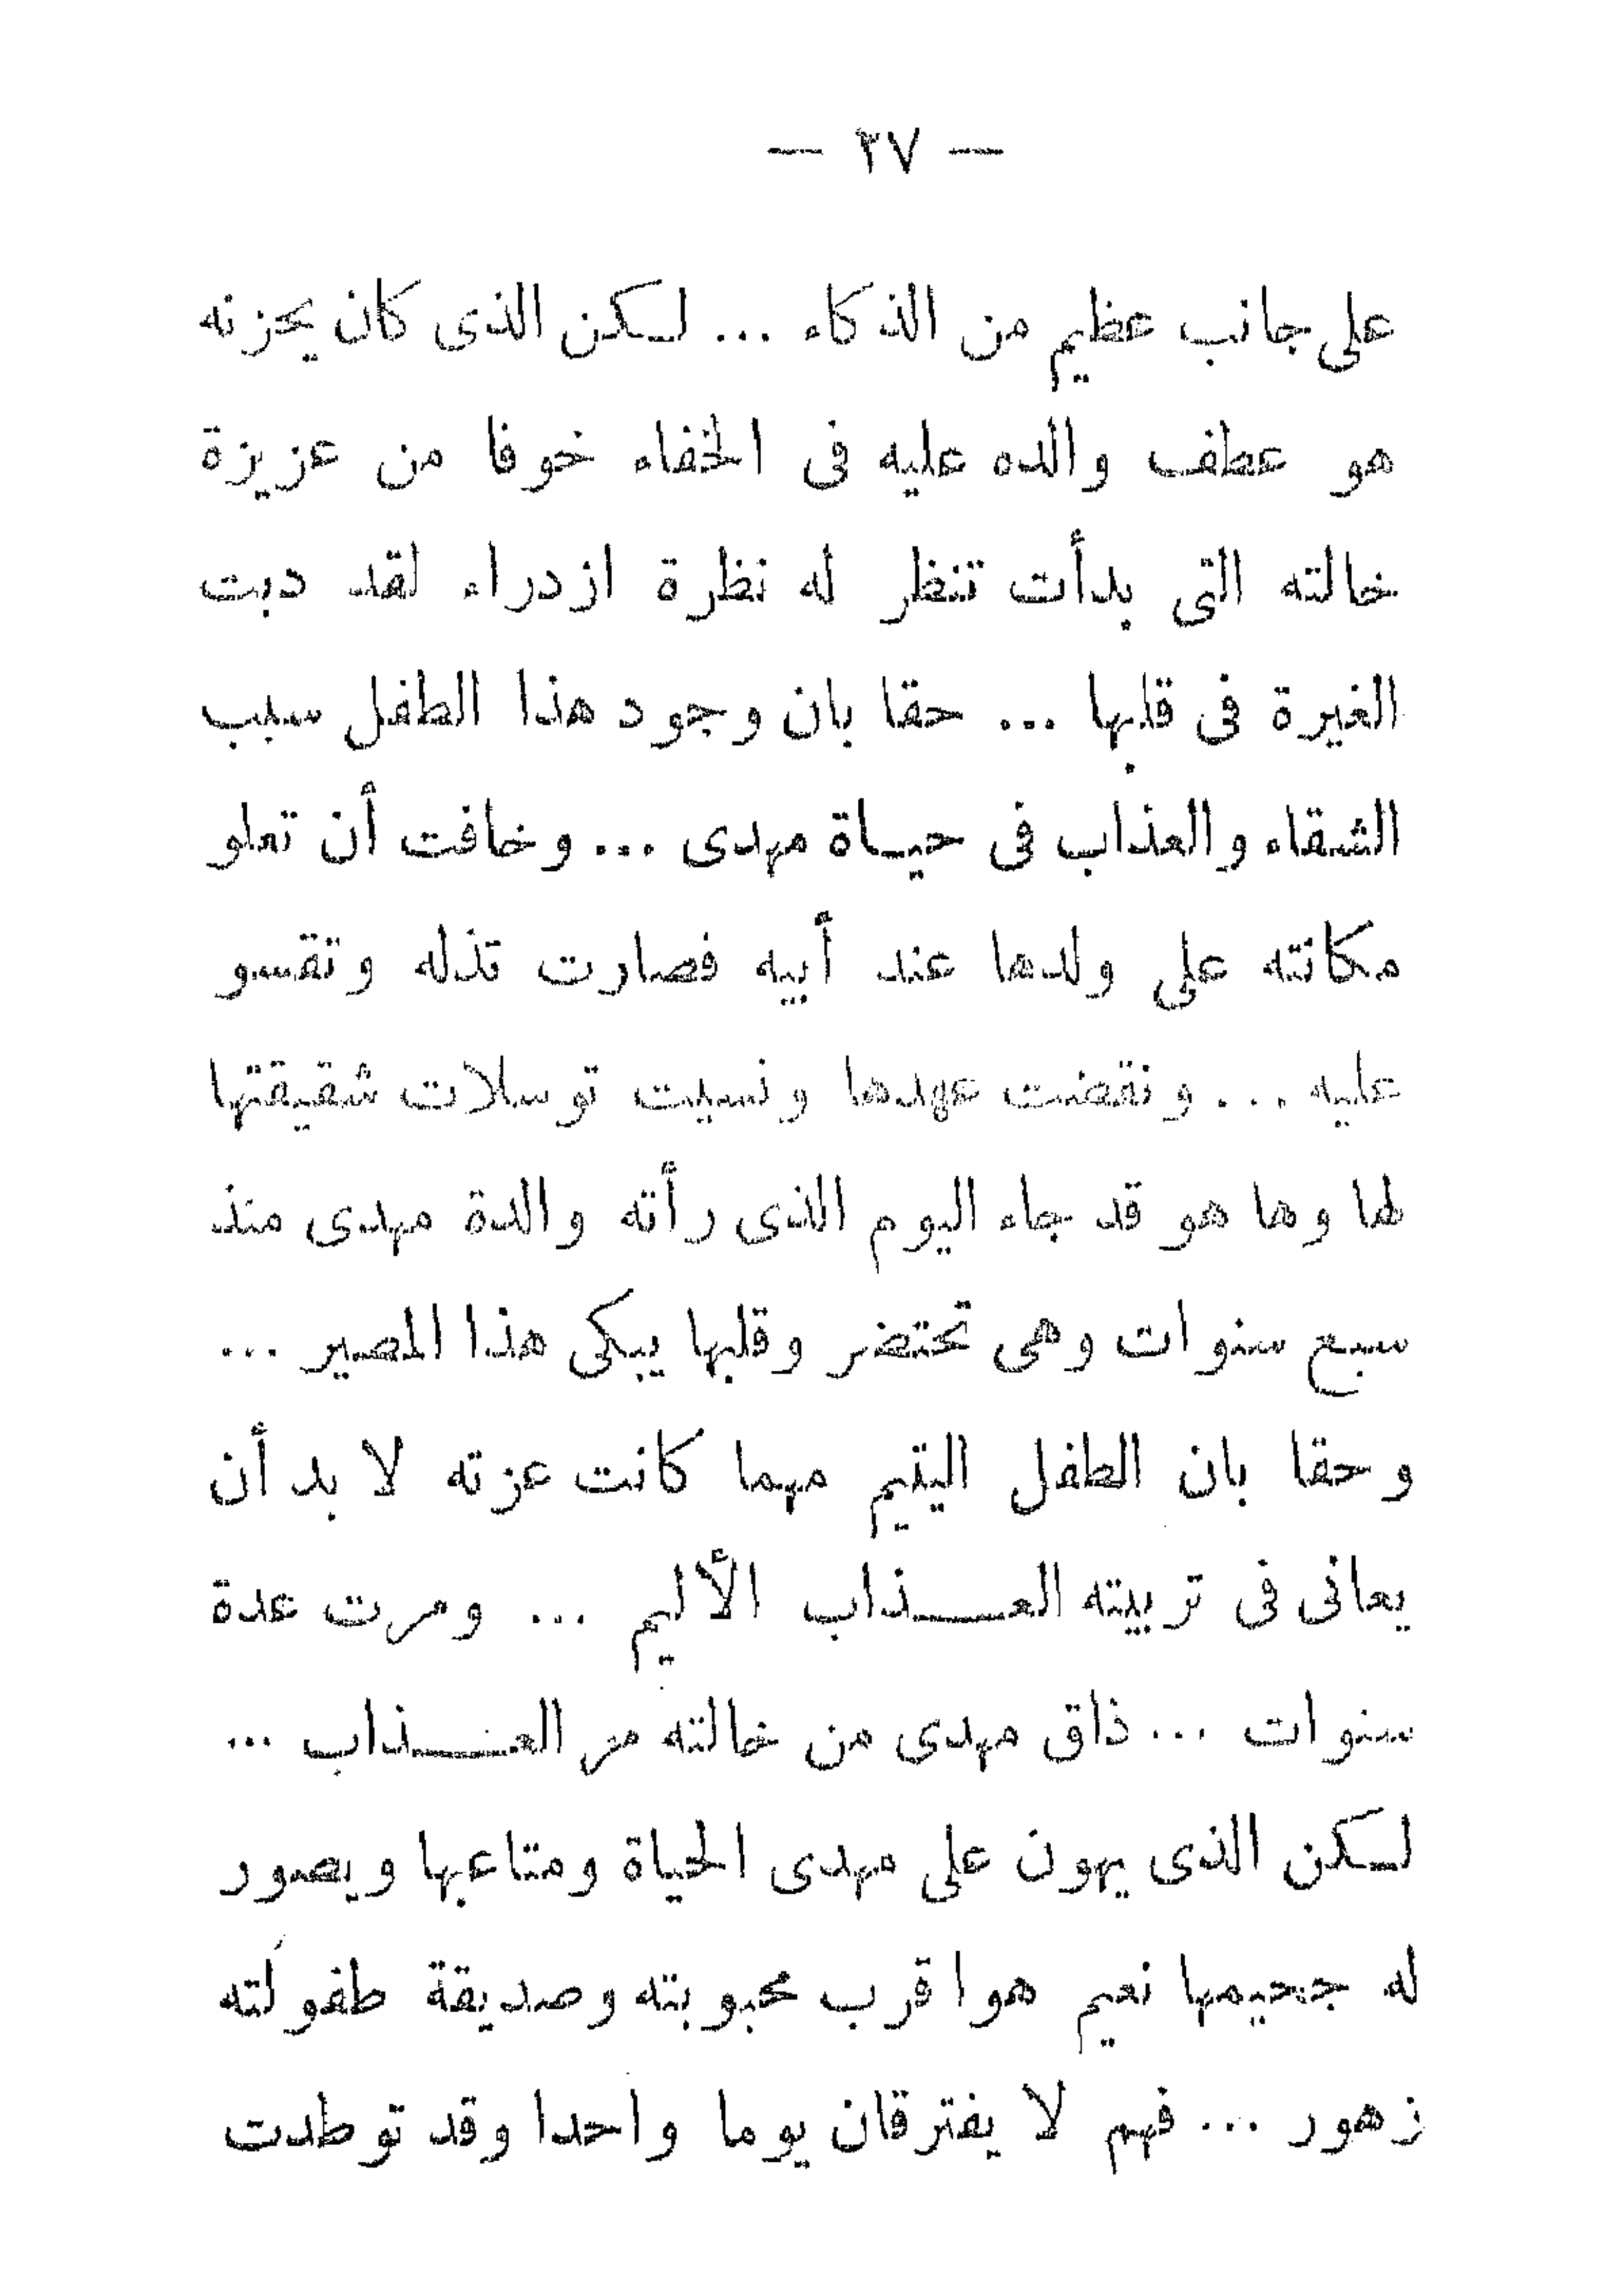 — ٣٧ —
على جانب عظيم من الذكاء ... لكن الذى كان يحزنه
هو عطف والده عليه فى الخفاء خوفا من عزيزة
خالته التى بدأت تنظر له نظرة ازدراء لقد دبت
الغيرة فى قلبها ... حقا بان وجود هذا الطفل سبب
الشقاء والعذاب فى حياة مهدى ... وخافت أن تعلو
مكانته على ولدها عند أبيه فصارت تذله وتقسو
عليه ... ونقضت عهدها ونسيت توسلات شقيقتها
لها وها هو قد جاء اليوم الذى رأته والدة مهدى منذ
سبع سنوات وهى تحتضر وقلبها يبكى هذا المصير ...
وحقا بان الطفل اليتيم مهما كانت عزته لا بد أن
يعانى فى تربيته العـــذاب الأليم ... ومرت عدة
سنوات ... ذاق مهدى من خالته مر العـــذاب ...
لكن الذى يهون على مهدى الحياة ومتاعبها ويصور
له جحيمها نعيم هوا قرب محبوبته وصديقة طفولته
زهور ... فهم لا يفترقان يوما واحدا وقد توطدت